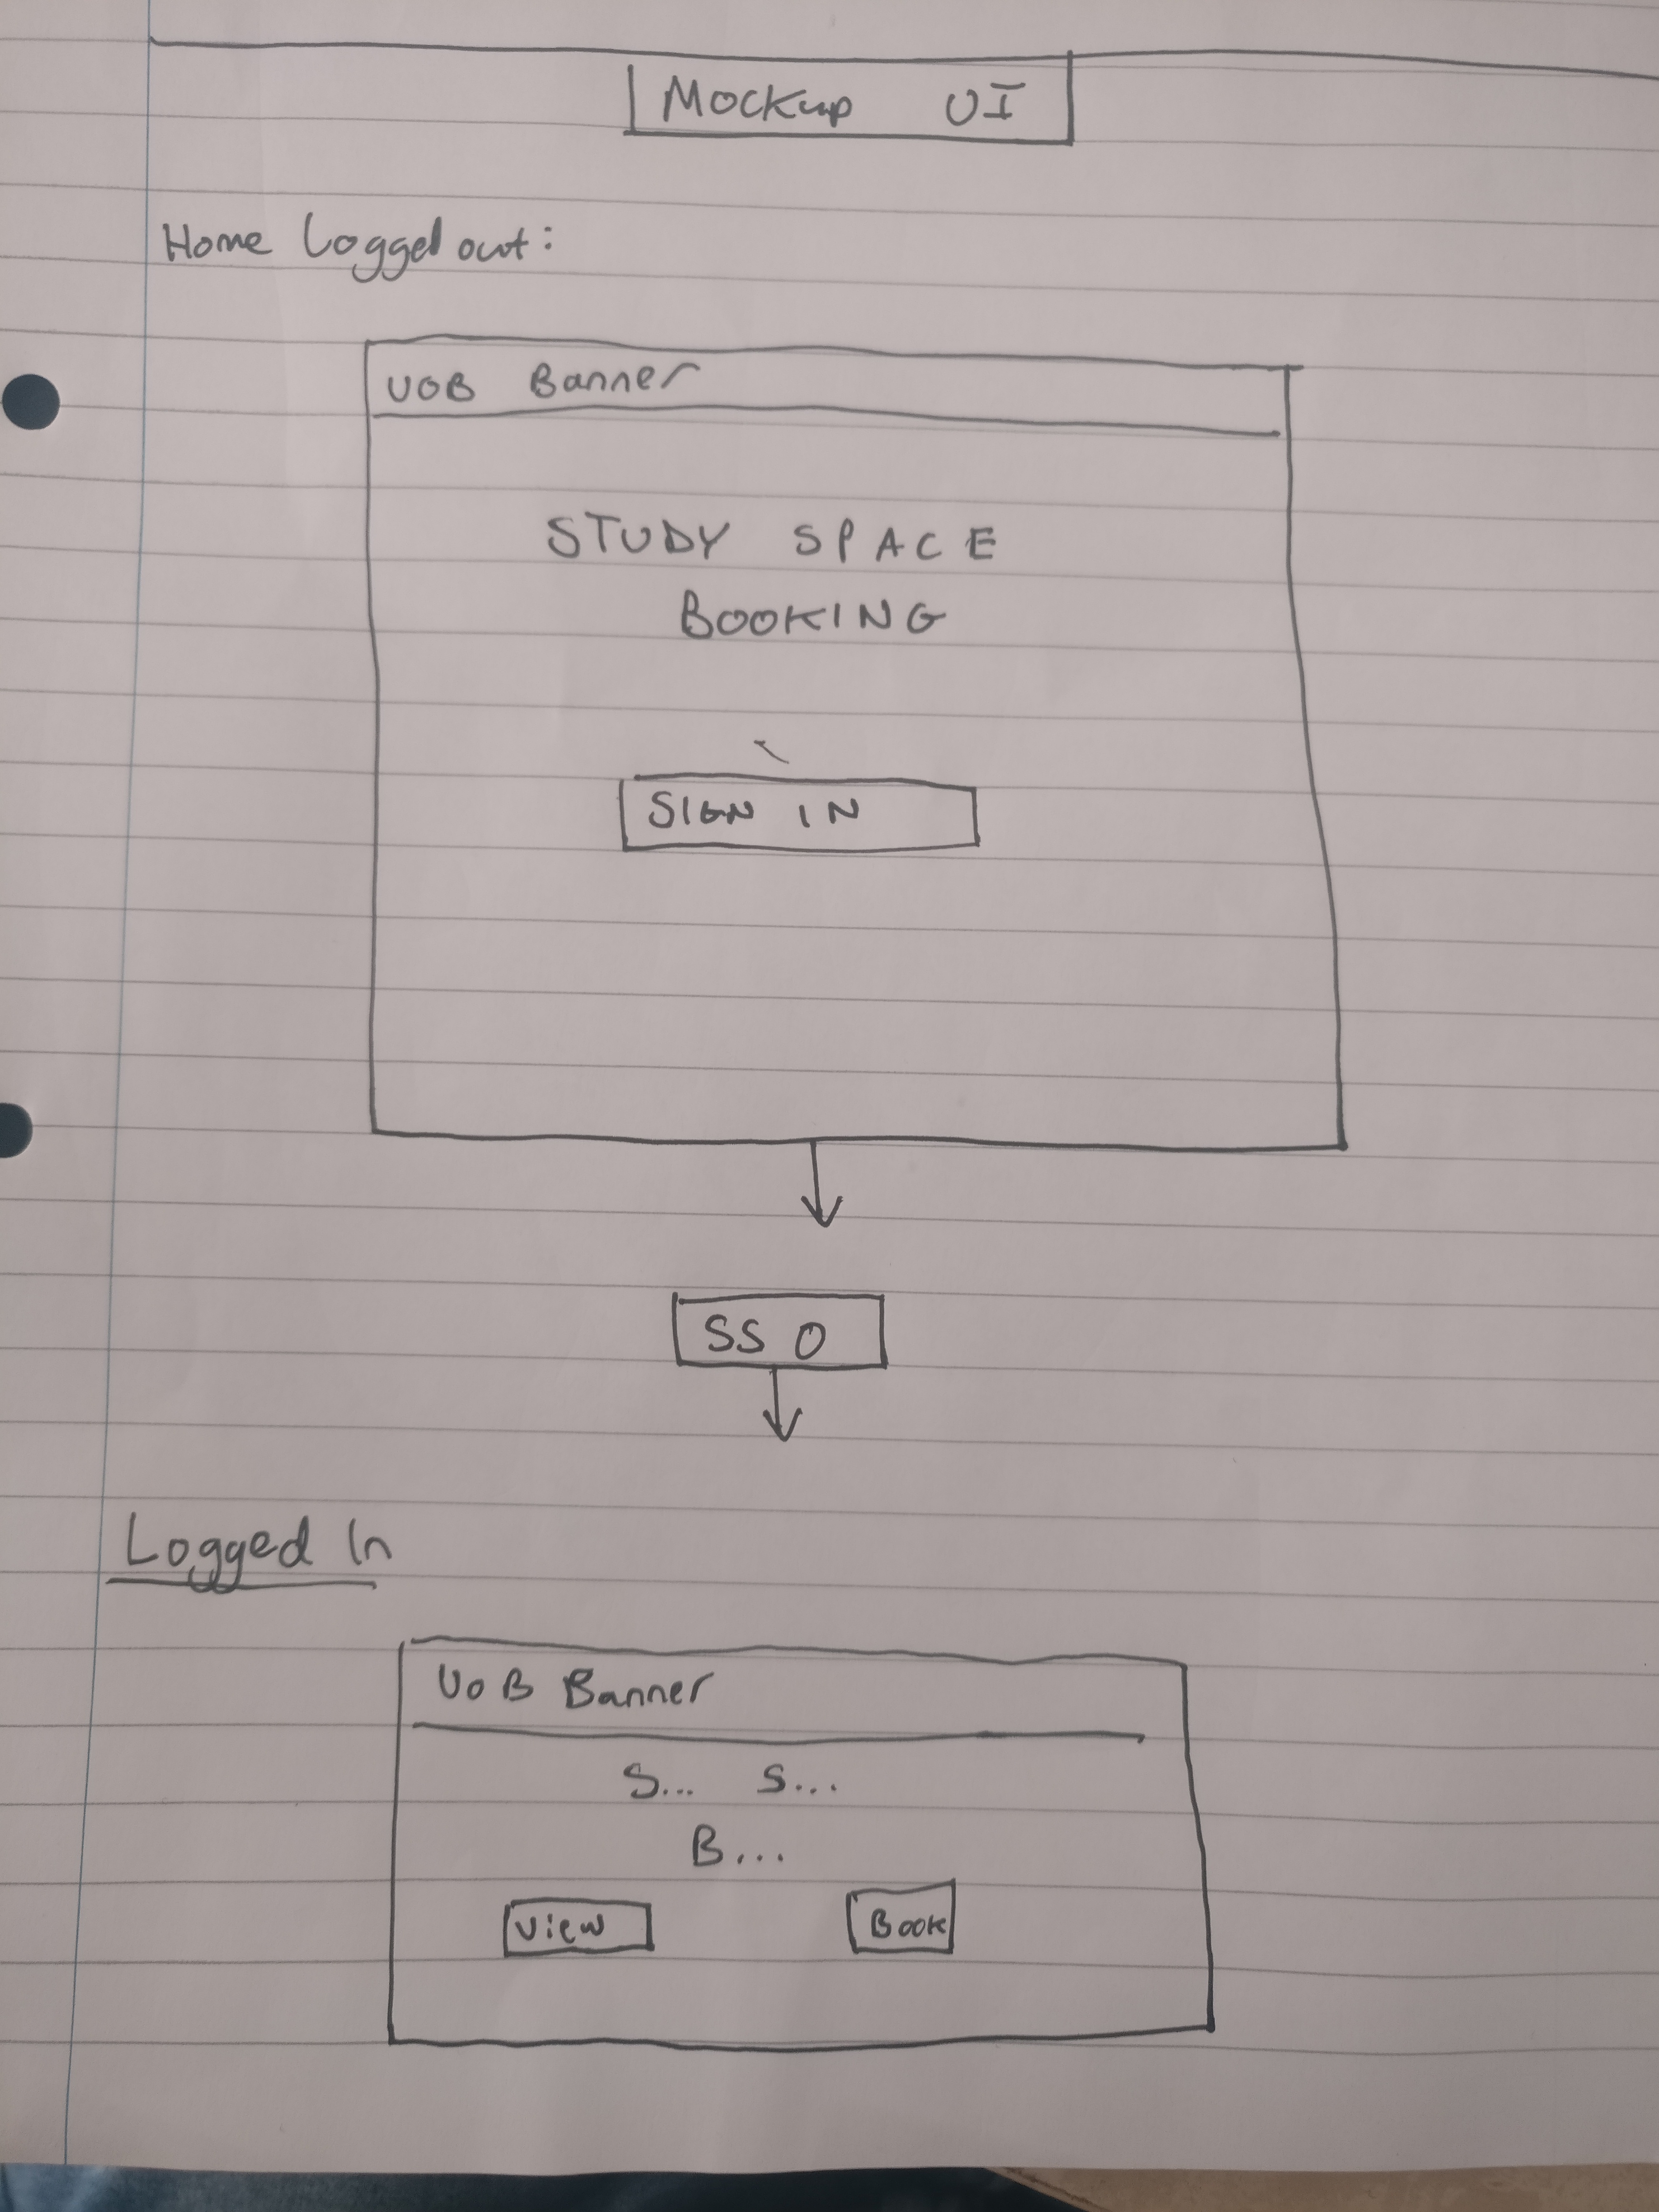 Mockup UI
Home Logged out:
UOB Banner
STUDY SPACE
BOOKING
SIGN IN
SSO
Logged In
UoB Banner
S... S...
B...
View Book